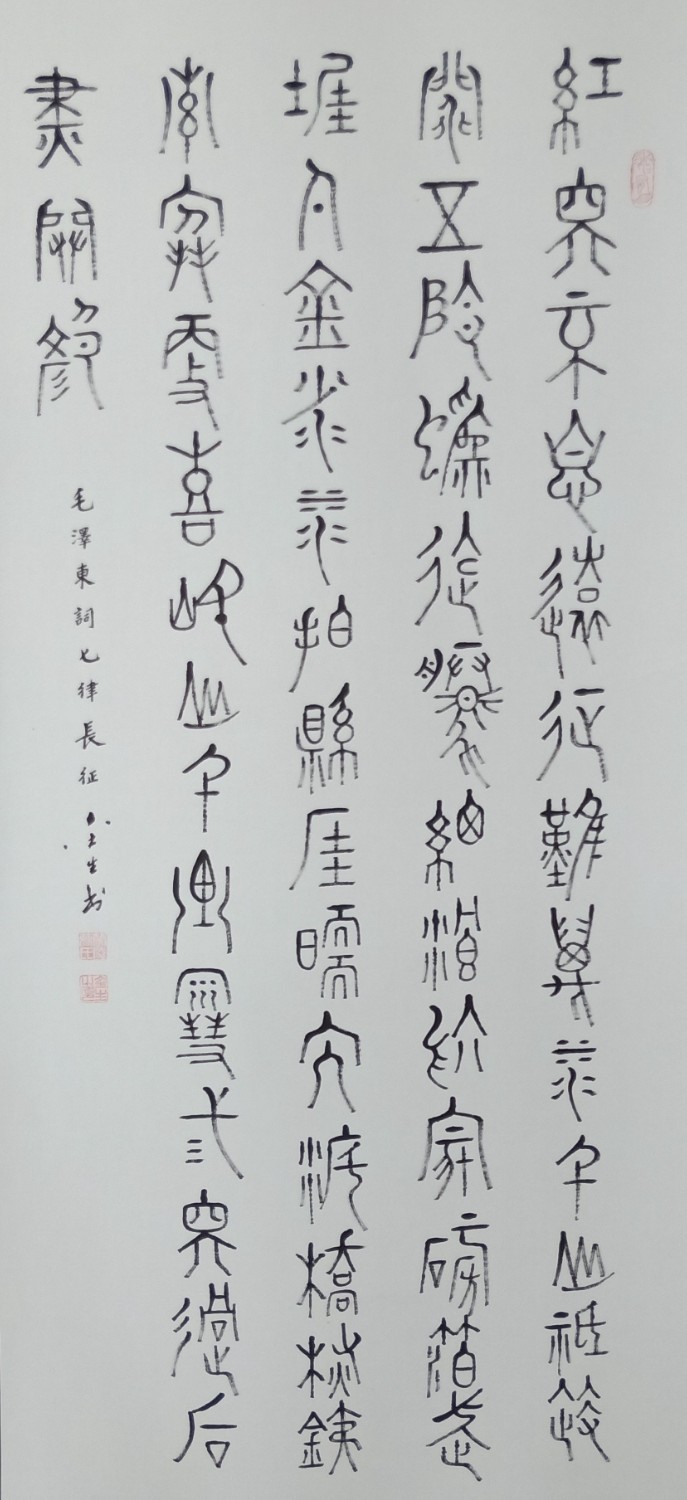 紅軍不怕遠征難萬水千山祗等
閒五嶺逶迤騰細浪烏蒙磅礴走
泥丸金沙水拍縣崖暖大渡橋橫鐵
索寒更喜岷山千里雪三軍過后
盡開顏
毛澤東詞七律長征